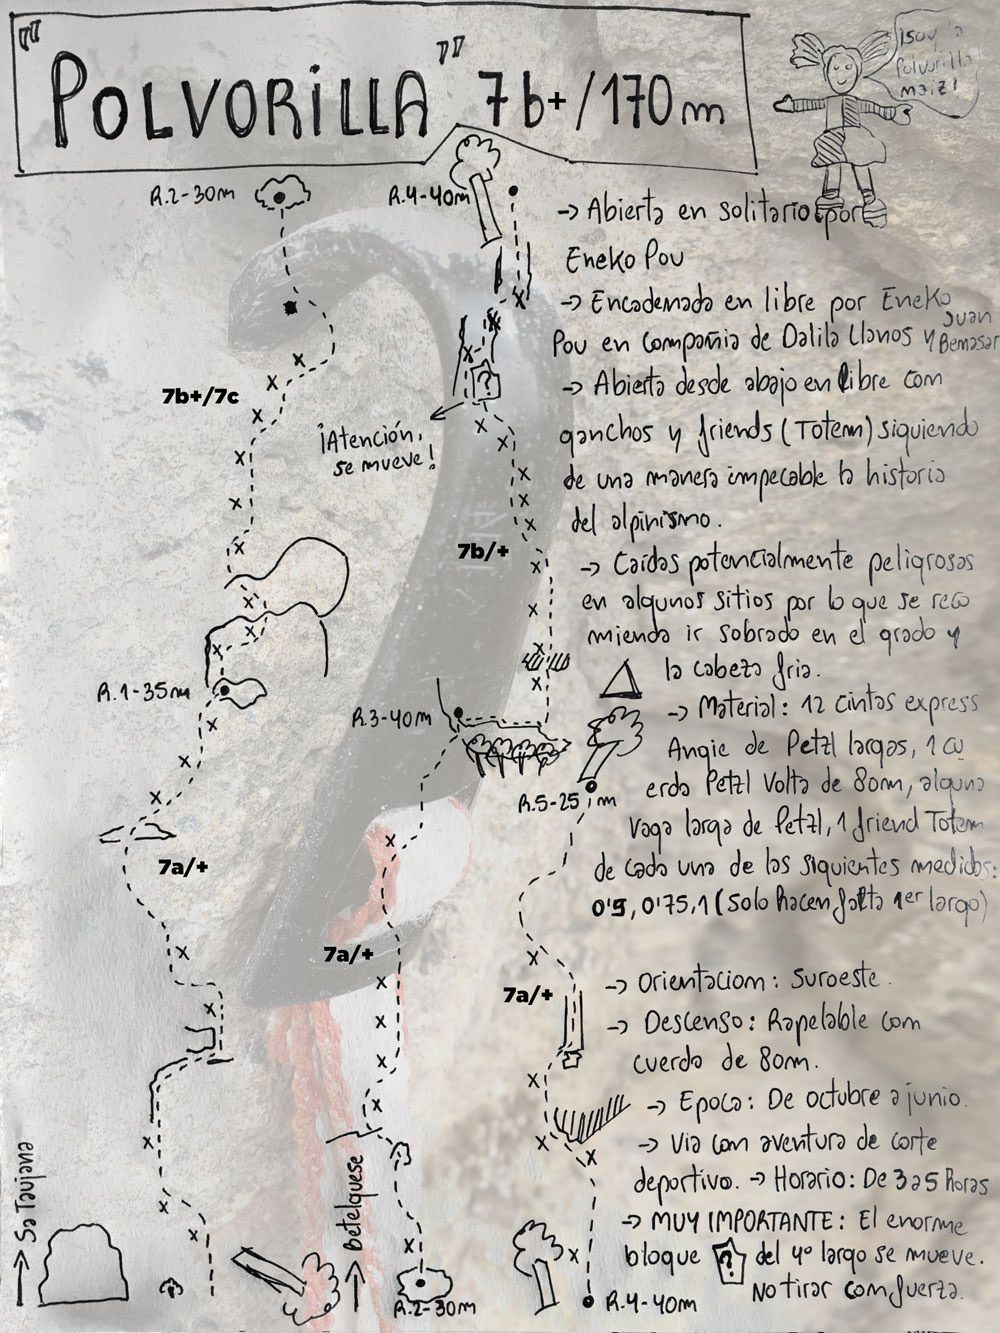 "POLVORILLA" 7b+/170m
¡Soy la
Polvorilla
maizi
R.2-30m
R.4-40m
→ Abierta en solitario por
Eneko Pou
→ Encadenada en libre por Eneko
Pou en compañia de Dalila Llanos y Juan
Bemasar
→ Abierta desde abajo en libre com
ganchos y friends (Totem) siguiendo
de una manera impecable la historia
del alpinismo.
7b+/7c
¡Atención,
se mueve!
?
7b/+
→ Caídas potencialmente peligrosas
en algunos sitios por lo que se reco
mienda ir sobrado en el grado y
la cabeza fria.
R.1-35m
R.3-40m
R.5-25m
→ Material: 12 cintas express
Angie de Petzl largas, 1 cu
erda Petzl Volta de 80m, alguna
vaga larga de Petzl, 1 friend Totem
de cada una de las siguientes medidas:
0'5, 0'75, 1 (solo hacen falta 1er largo)
7a/+
7a/+
7a/+
→ Orientaciom: Suroeste.
→ Descenso: Rapelable com
cuerda de 80m.
→ Epoca: De octubre a junio.
→ Via com aventura de corte
deportivo. → Horario: De 3 a 5 horas
→ MUY IMPORTANTE: El enorme
bloque ? del 4º largo se mueve.
No tirar com fuerza.
→ Sa Taujana
→ Betelguese
R.2-30m
R.4-40m